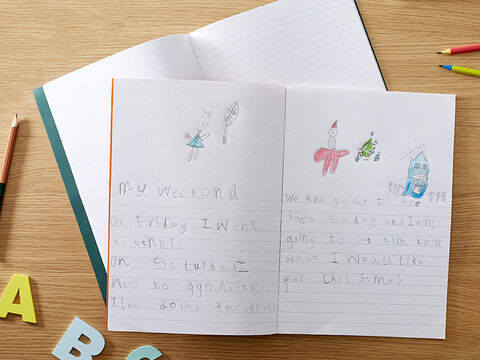 my weekend
On Friday I went
to tennis.
on Saturday I
went to gymnastics.
I am doing the splits
We are going to see
santa today and I am
going to let him know
what I would like
for christmas
A
B
C